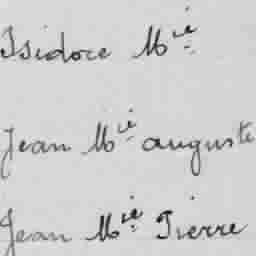 Isidore Mie
Jean Mie auguste
Jean Mie Pierre